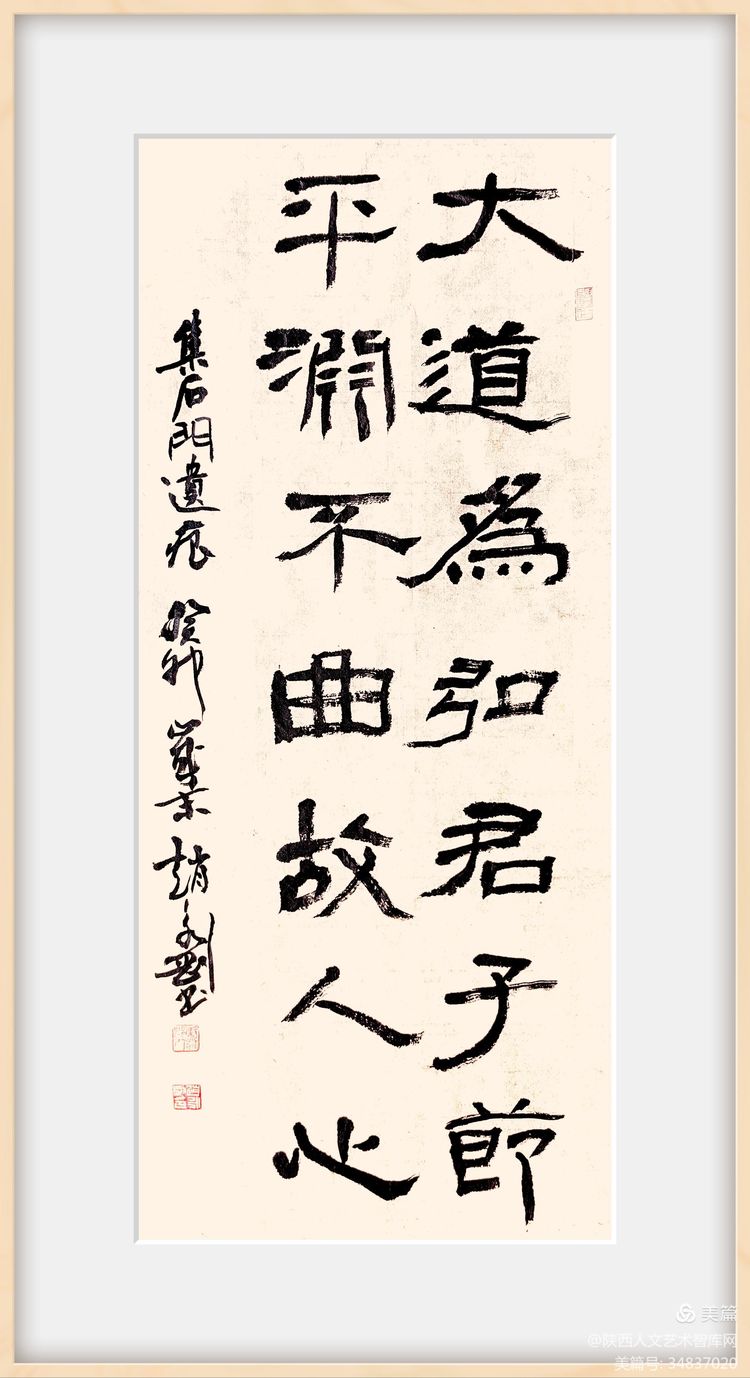 大道為弘君子節
平淵不曲故人心
集石門遺痕 癸卯歲末 趙永剛书
美篇
@陕西人文艺术智库网
美篇号: 34837020